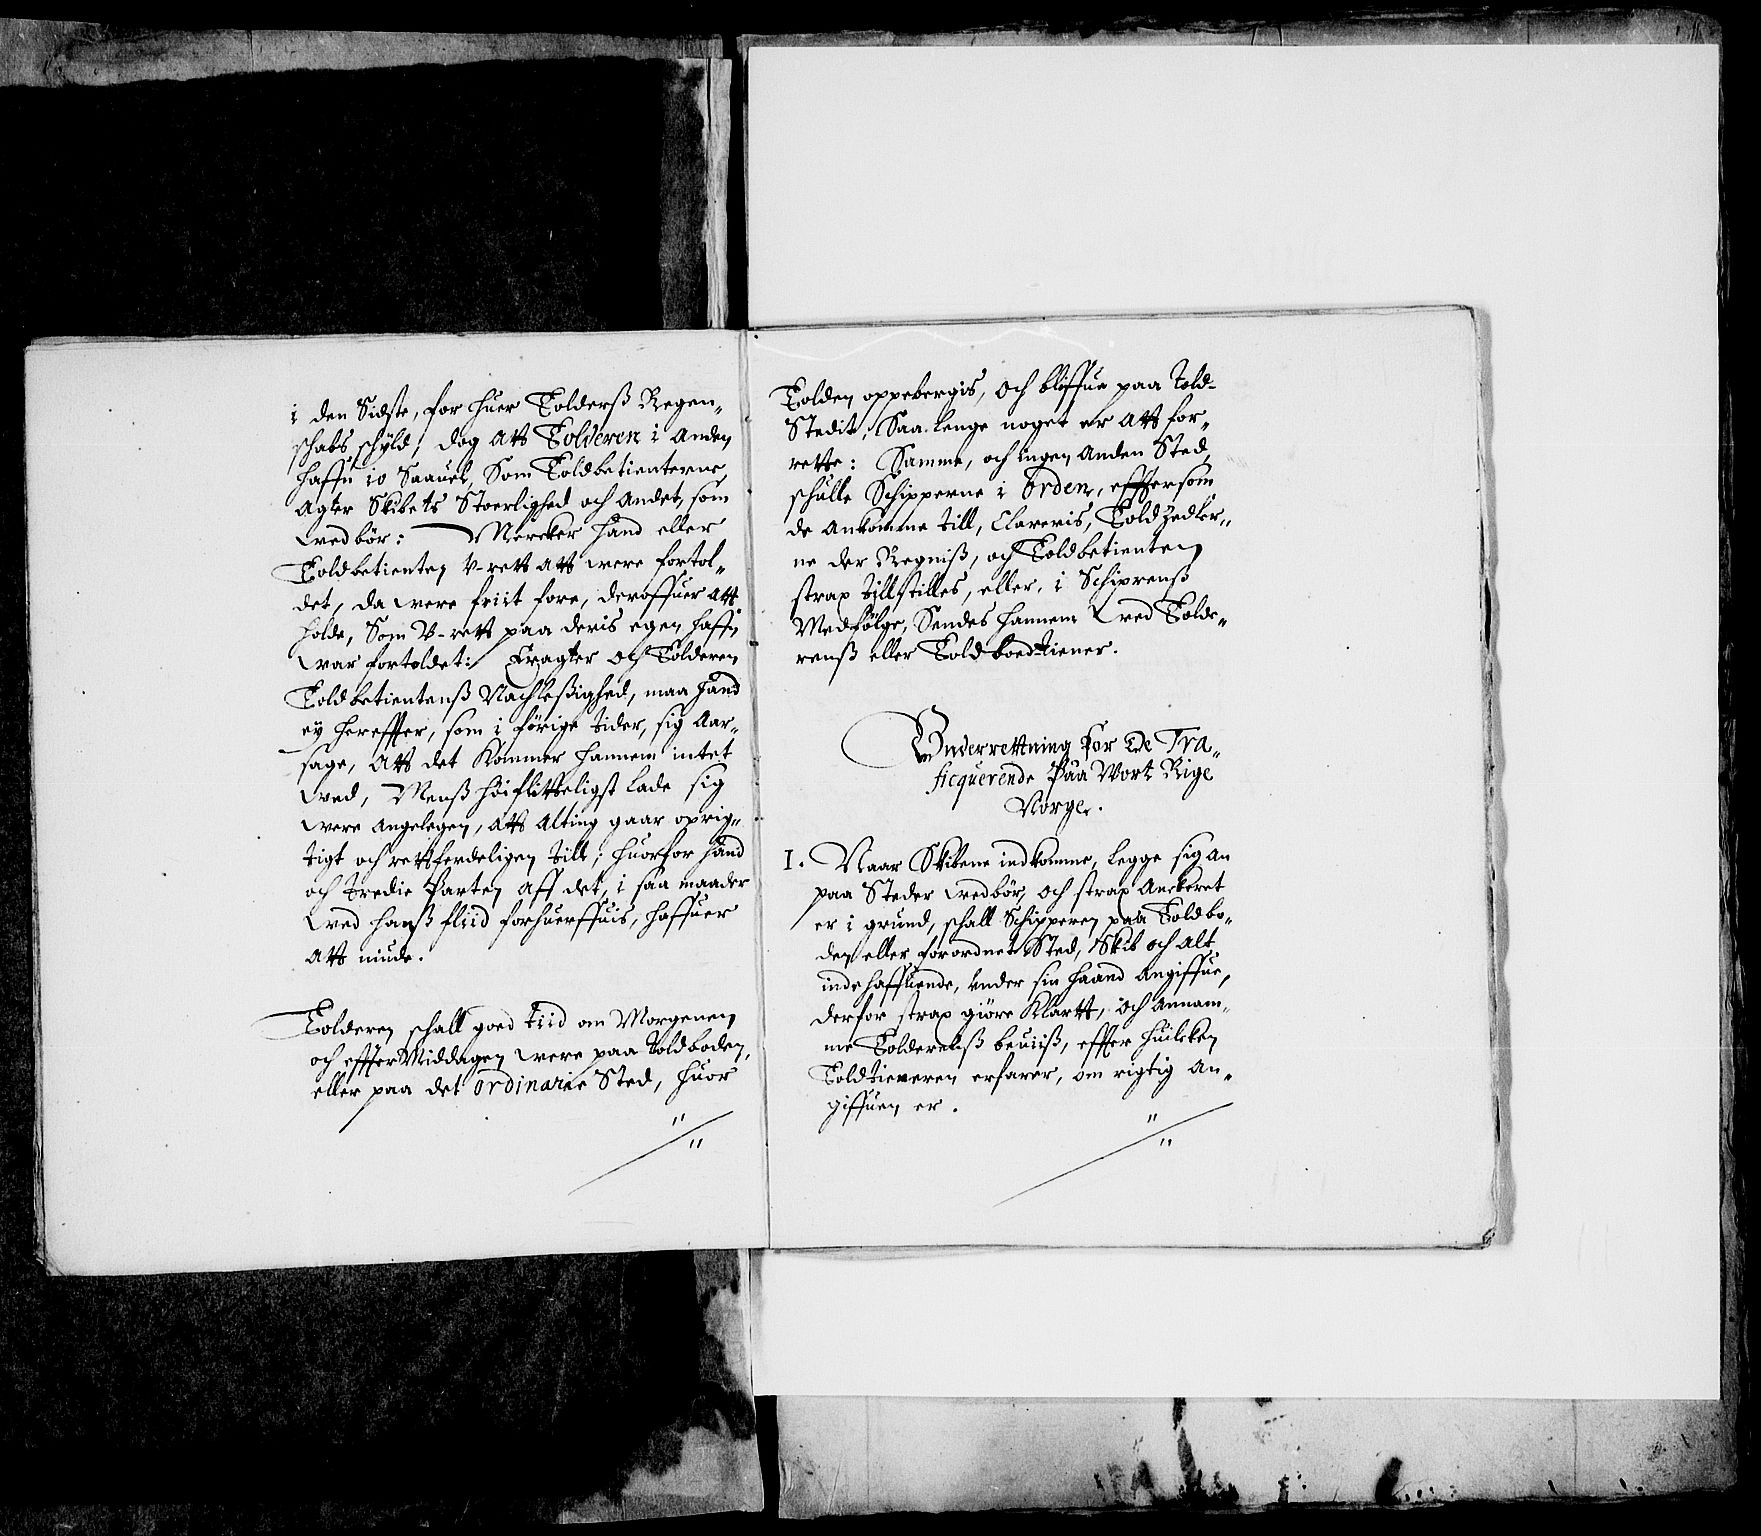 i den Sidste, for huer Tolderß Regen„
schabs schyld; dog att Tolderen i Anden
haffn io Saauel, Som Toldbetienterne,
Agter Skibets Stoerlighed och Andet, som
wedbör: Mercker hand eller
Toldbetienten V-rett att were fortol„
det, da were friit fore, deroffuer att
holde, Som V-rett paa deris egen haffn
war fortoldet: Eragter och Tolderen
Toldbetientenß Nachleßighed, maa hand
ey hereffter, som i förige tider, sig Aar„
sage, Att det Kommer hannem intet
wed, Menß höifliitteligst lade sig
were angelegen, att alting gaar oprig„
tigt och rettferdeligen till; huorfor hand
och tredie Parten aff det, i saa maader
wed hanß fliid forhuerffuis, haffuer
Att niude.
Tolderen schall goed tiid om Morgenen
och effter Middagen were paa toldboden,
eller paa det ordinarie Sted, huor
Tolden oppebergis, och bliffue paa told-
Stedit, Saa lenge noget er att for„
rette: Samme, och ingen anden Sted,
schulle Schipperne i Orden, efftersom
de ankomme till, Clareris, Toldzedler„
ne der Regniß, och Toldbetienten
strax tillstilles, eller, i Schiprenß
Medfölge, Sendes hannem wed Tolde„
renß eller Toldboedtiener.
Vnderrettning for De Tra„
ficquerende Paa Wort Rige
Norge.
1. Naar Skibene indkomme, legge sig an
paa Steder wedbör, och strax Anckeret
er i grund, schall Schipperen paa Toldbo„
den eller forordnet Sted, Skib och alt
indehaffuende, vnder sin haand angiffue,
derfor strax giöre Klartt, och annam„
me Tolderenß beuiiß, effter huilcken
Toldtieneren erfarer, om rigtig an„
giffuen er.